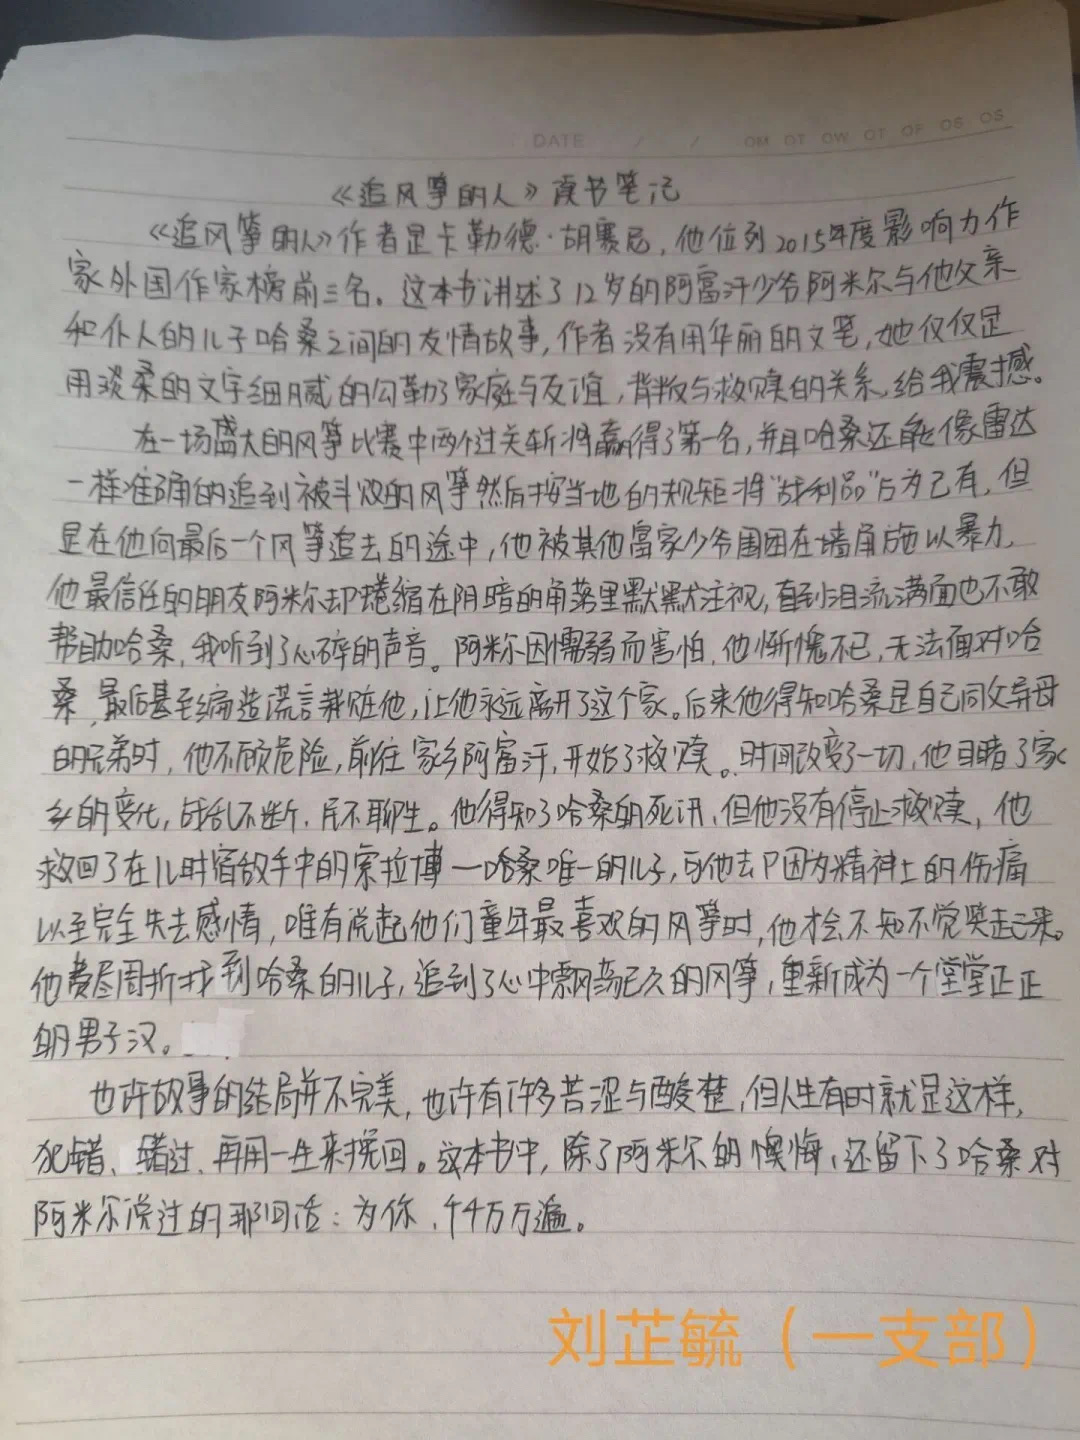 DATE / / OM OT OW OT OF OS OS
《追风筝的人》读书笔记
《追风筝的人》作者是卡勒德·胡赛尼,他位列2015年度影响力作
家外国作家榜前三名。这本书讲述了12岁的阿富汗少爷阿米尔与他父亲
和仆人的儿子哈桑之间的友情故事,作者没有用华丽的文笔,她仅仅是
用淡柔的文字细腻的勾勒了家庭与友谊,背叛与救赎的关系,给我震撼。
在一场盛大的风筝比赛中两个过关斩将赢得了第一名,并且哈桑还能像雷达
一样准确的追到被斗败的风筝然后按当地的规矩将"战利品"占为己有,但
是在他向最后一个风筝追去的途中,他被其他富家少爷围困在墙角施以暴力,
他最信任的朋友阿米尔却蜷缩在阴暗的角落里默默注视,直到泪流满面也不敢
帮助哈桑,我听到了心碎的声音。阿米尔因懦弱而害怕,他惭愧不已,无法面对哈
桑,最后甚至编造谎言栽赃他,让他永远离开了这个家。后来他得知哈桑是自己同父异母
的兄弟时,他不顾危险,前往家乡阿富汗,开始了救赎。时间改变了一切,他目睹了家
乡的变化,战乱不断,民不聊生。他得知了哈桑的死讯,但他没有停止救赎,他
救回了在儿时宿敌手中的索拉博一哈桑唯一的儿子,可他去P因为精神上的伤痛
以至完全失去感情,唯有说起他们童年最喜欢的风筝时,他才会不知不觉笑起来。
他费尽周折找到哈桑的儿子,追到了心中飘荡已久的风筝,重新成为一个堂堂正正
的男子汉。
也许故事的结局并不完美,也许有许多苦涩与酸楚,但人生有时就是这样,
犯错、错过、再用一生来挽回。这本书中,除了阿米尔的懊悔,还留下了哈桑对
阿米尔说过的那句话:为你,千千万万遍。
刘芷毓(一支部)